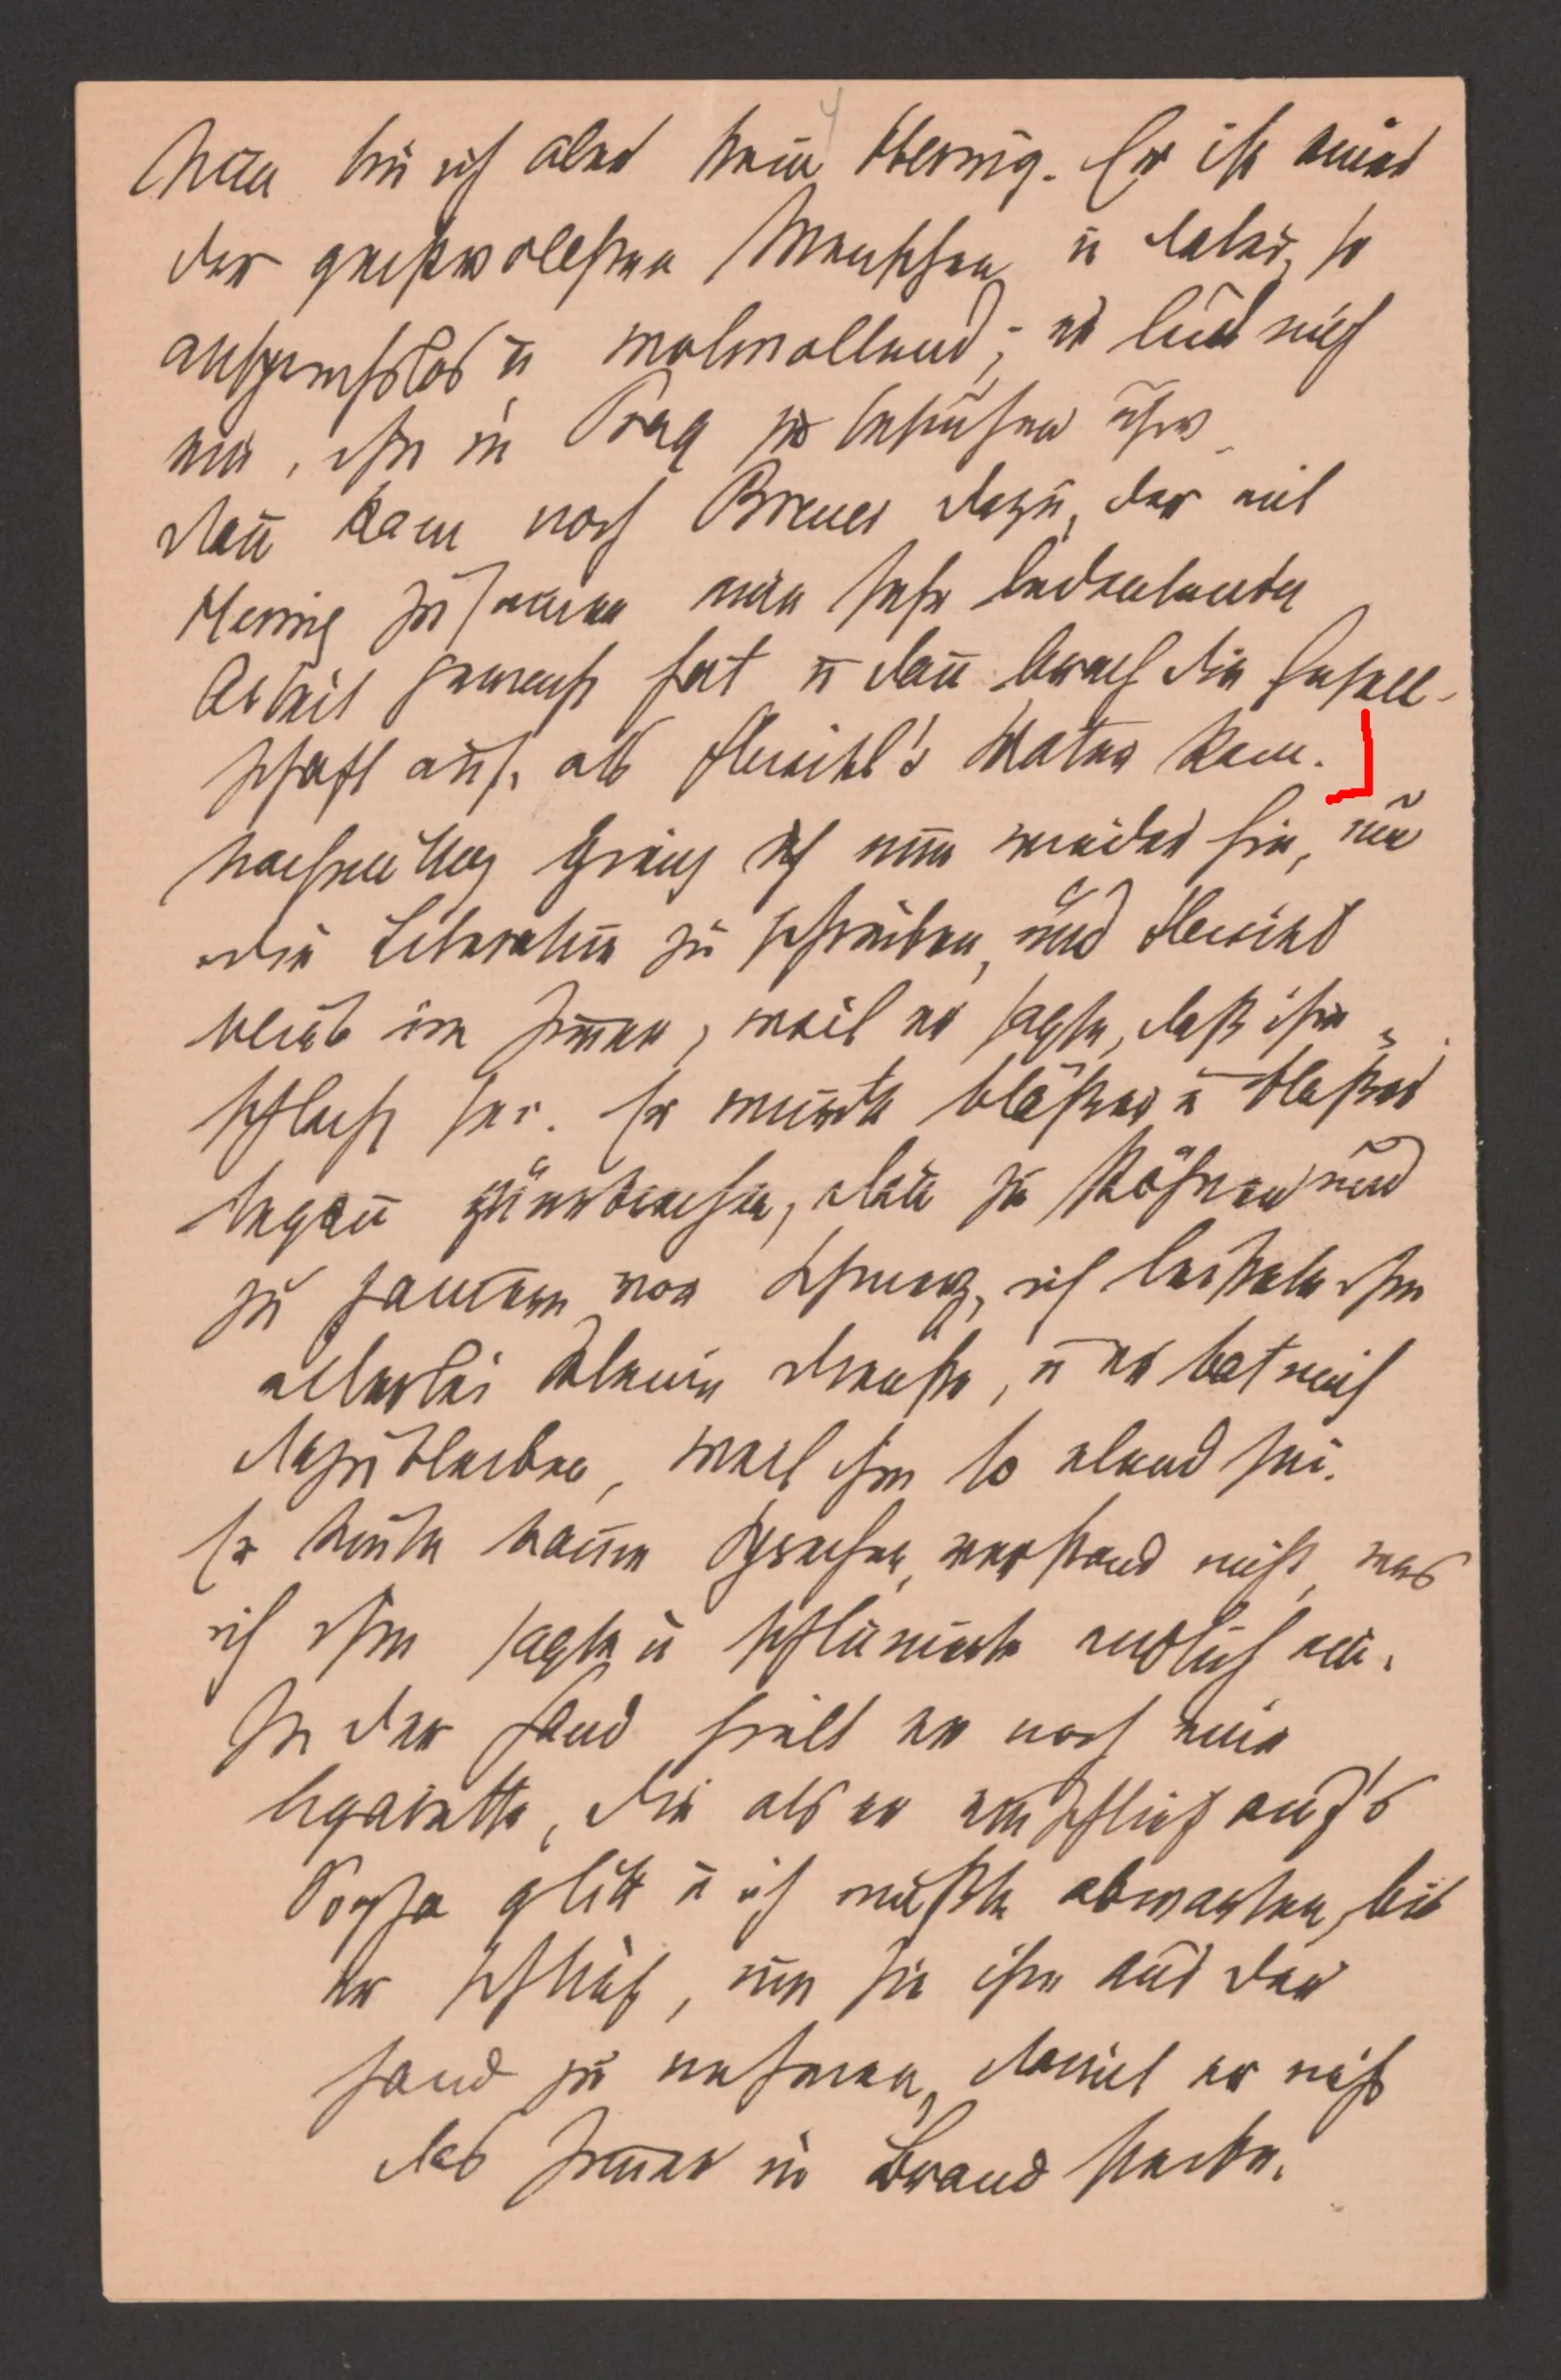 Nun bin ich aber kein Hering. Er ist einer
der geistvollsten Menschen u dabei so
anspruchslos u wolwollend; er lud mich
ein, ihn in Prag zu besuchen usw.
Dann kam noch Breuer dazu, der mit
Hering zusammen eine sehr bedeutende
Arbeit gemacht hat u dann brach die Gesell-
schaft auf, als Fleischl's Vater kam.
Nachmittag ging ich nun wieder hin, um
die Literatur zu schreiben, und Fleischl
blieb im Zimmer, weil er sagte, daß ihm
schlecht sei. Er wurde bläßer u bläßer
begann zu erbrechen, dann zu stöhnen und
zu jammern vor Schmerz, ich leistete ihm
allerlei kleine Dienste, u er bat mich
dazubleiben, weil ihm so elend sei.
Er konnte kaum sprechen, verstand nicht, was
ich ihm sagte u schlummerte endlich ein.
In der Hand hielt er noch eine
Cigarette, die als er einschlief auf's
Sopha glitt u ich mußte abwarten, bis
er schlief, um sie ihm aus der
Hand zu nehmen, damit er nicht
das Zimmer in Brand stecke.